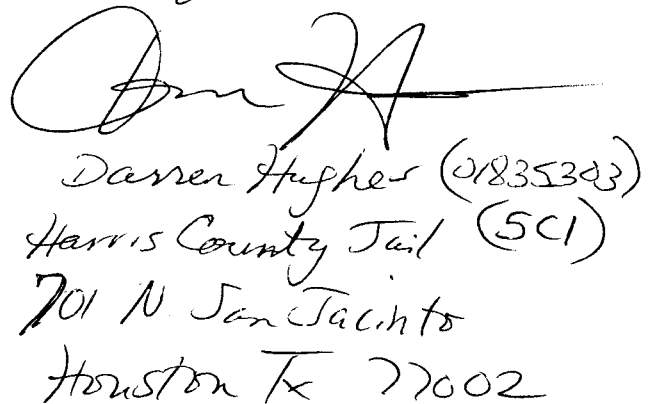 Darren Hughes (01835303)
Harris County Jail (5C1)
701 N San Jacinto
Houston Tx 77002